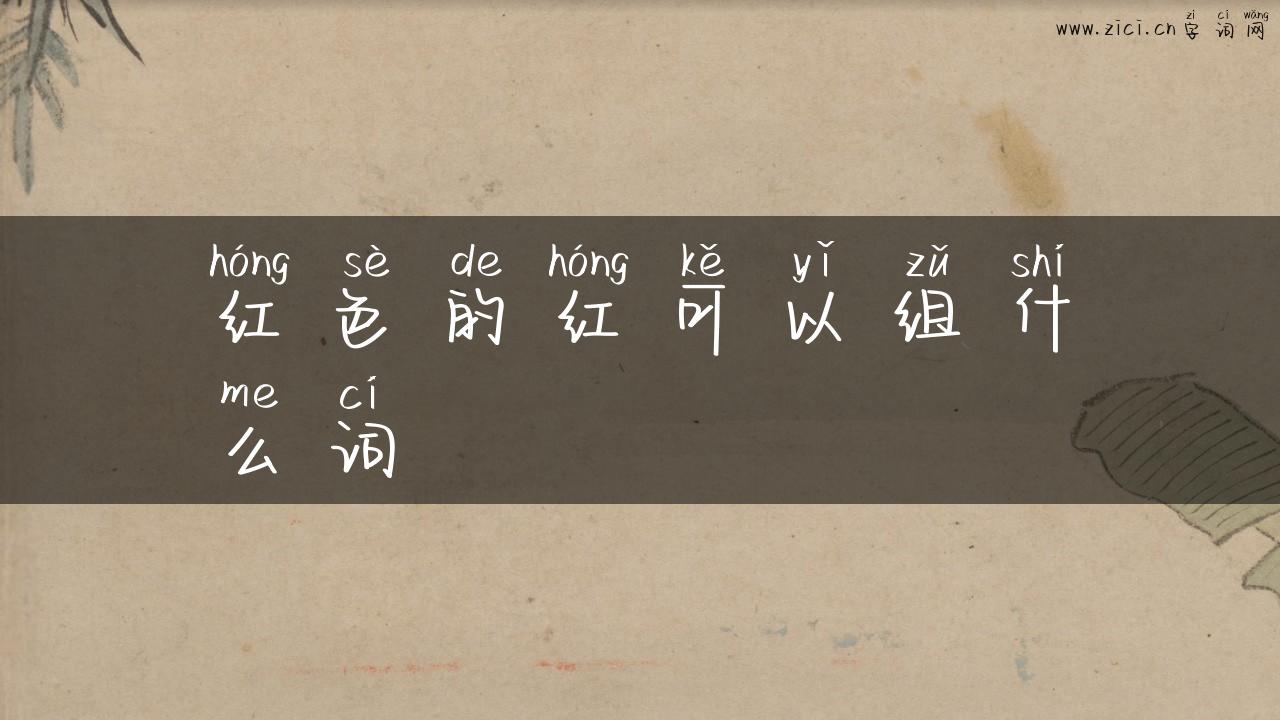 zì cí wǎng
www.zici.cn 字词网
hóng sè de hóng kě yǐ zǔ shí
红色的红可以组什
me cí
么词